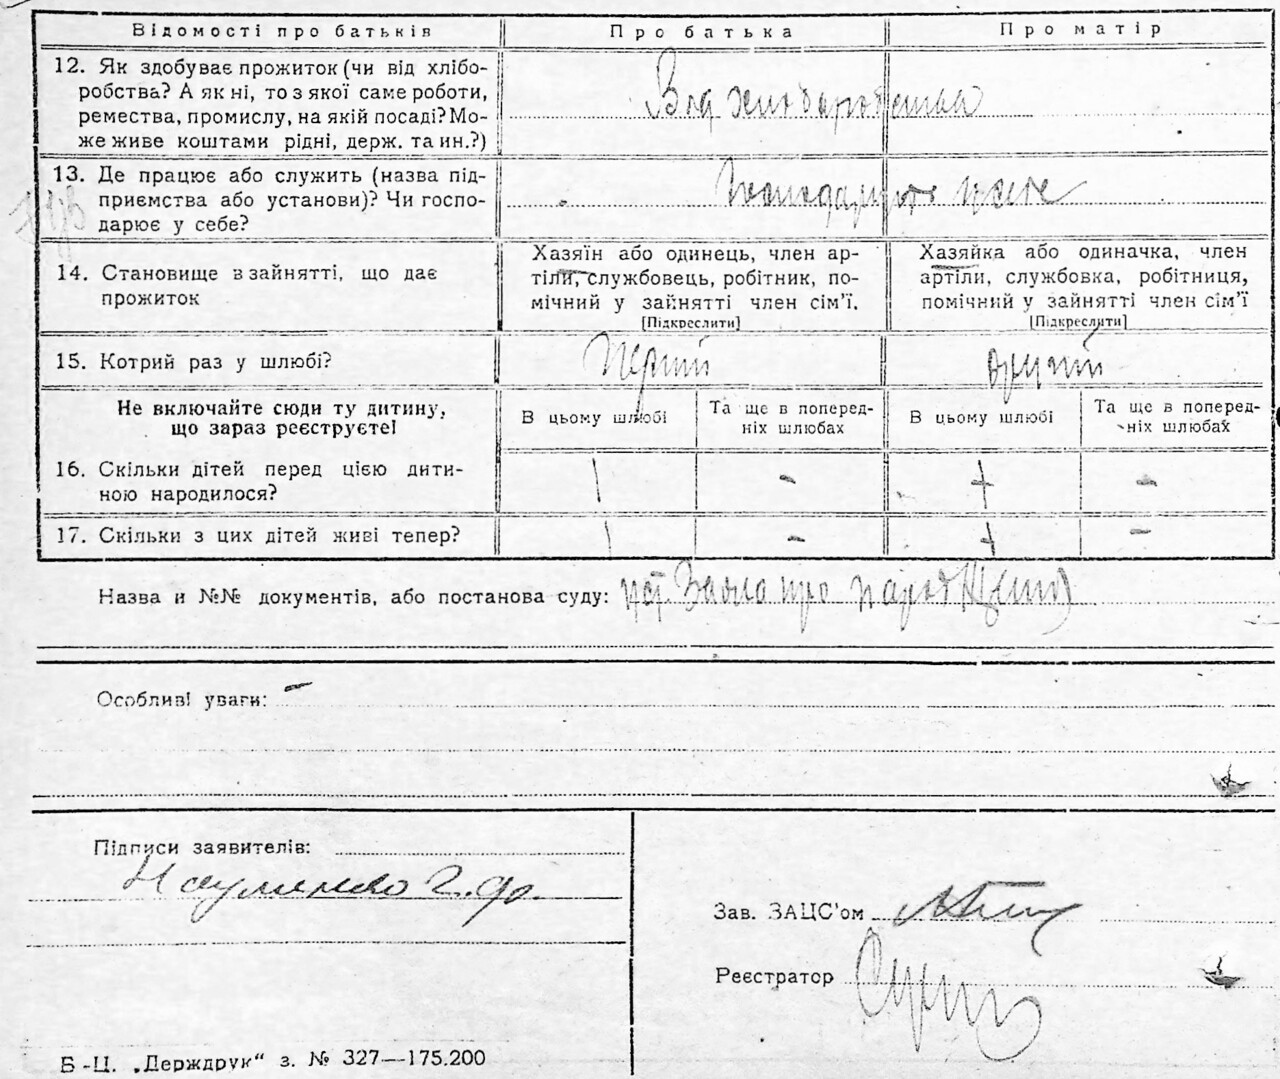 Відомості про батьків Про батька Про матір
12. Як здобуває прожиток (чи від хлібо-
робства? А як ні, то з якої саме роботи,
ремества, промислу, на якій посаді? Мо-
же живе коштами рідні, держ. та ин.?)
Від хліборобства
13. Де працює або служить (назва під-
приємства або установи)? Чи госпо-
дарює у себе?
14. Становище в зайнятті, що дає
прожиток
Хазяїн або одинець, член ар-
тіли, службовець, робітник, по-
мічний у зайнятті член сім'ї.
[Підкреслити]
Хазяйка або одиначка, член
артіли, службовка, робітниця,
помічний у зайнятті член сім'ї
[Підкреслити]
15. Котрий раз у шлюбі? Перший другий
Не включайте сюди ту дитину,
що зараз реєструєте!
В цьому шлюбі
Та ще в поперед-
ніх шлюбах
В цьому шлюбі
Та ще в поперед-
ніх шлюбах
16. Скільки дітей перед цією дити-
ною народилося?
1 - + -
17. Скільки з цих дітей живі тепер? 1 - + -
Назва и №№ документів, або постанова суду: уст. Заява про
Особливі уваги: –
Підписи заявителів:
Науменко
Зав. ЗАЦС'ом
Реєстратор
Б-Ц. „Держдрук“ з. № 327—175.200